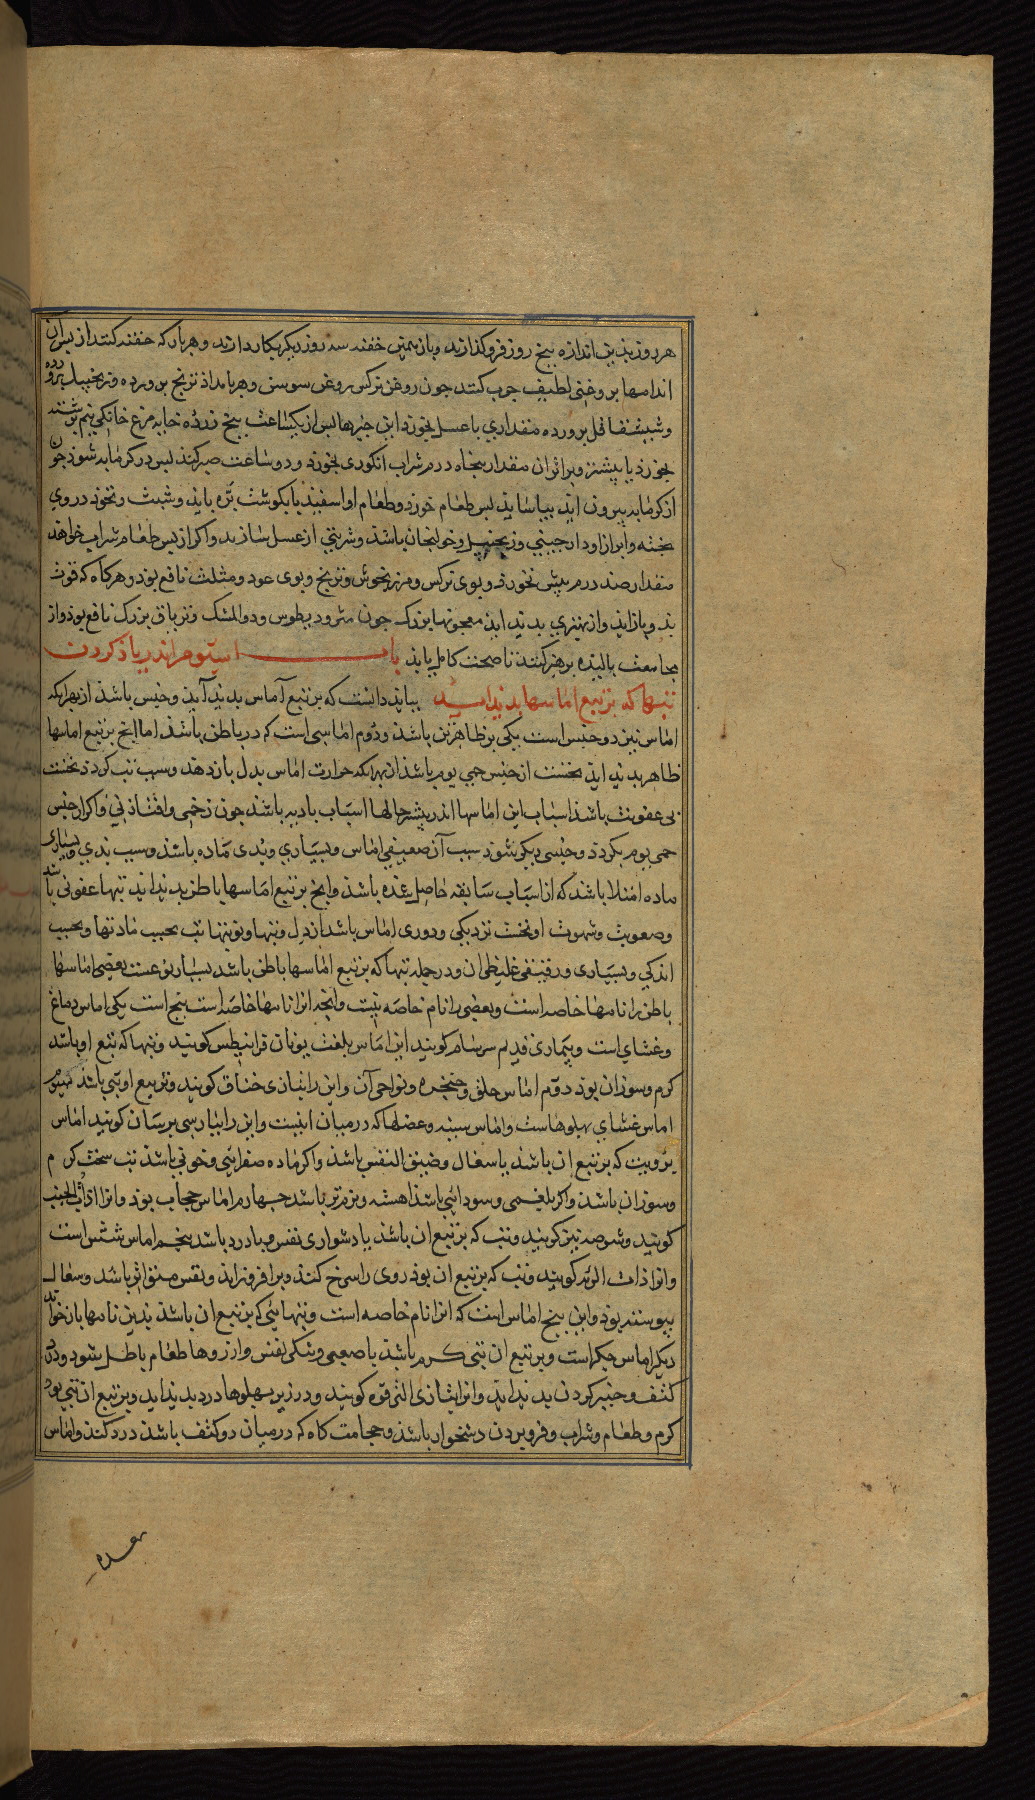 هر روز بذین اندازه پنج روز فرو کذارند و باز همین حقنه سه روز دیکر بکار دارند و هر بار که حقنه کنند از پس آن
اندامها بروغنی لطیف چرب کنند چون روغن نرکس و روغن سوسن و هر بامداد ترنج پرورده و زنجبیل پرورده
و شقاقل پرورده مقداری با عسل بخورد این چیزها پس از یکساعت پنج زرده خایه مرغ خانکی نیم برشته
بخورد یا پیشتر و بر اثر ان مقدار پنجاه درم شراب انکوری بخورد و دو ساعت صبر کند پس در کرمابه شود چون
از کرمابه بیرون اید بیاساید پس طعام خورد و طعام او اسفیذبا بکوشت بره باید و شبت و نخود در وی
پخته و ابزار او دارچینی و زنجبیل و خولنجان باشد و شربتی از عسل سازند و اکر از پس طعام شراب خواهد
مقدار صد درم بیش نخورد و بوی نرکس و مرزنجوش و ترنج و بوی عود و مثلث نافع بود و هرکاه که قوت
بذو باز اید و از بهتری بدید اید معجونها بزرک چون مثرودیطوس و دوالمسک و تریاق بزرک نافع بود و از
مجامعت بالبته پرهیز کنند تا صحت کامل یابد باب سیوم اندر یاذ کردن
تبها که بر تبع اماسها بدید امید بباید دانست که بر تبع آماس بدید آید و جنس باشد از بهر انکه
اماس نیز دو جنس است یکی بر ظاهر تن باشد و دوم اماسی است که در باطن باشد اما انچ بر تبع اماسها
ظاهر بدید اید نخست از جنس حمی یوم باشد از بهر انکه حرارت اماس بدل باز دهد و سبب تب کردد نخست
بی عفونت باشد اسباب این اماسها اندر بیشتر حالها اسباب بادیه باشد چون زخمی و افتادنی و اکر از جنس
حمی یوم بکردد و جنسی دیکر شود سبب آن ضعیفی اماس و بسیاری و بدی ماده باشد و سبب بدی و بسیاری
ماده امتلا باشد که از اسباب سابقه حاصل شده باشد و انچ بر تبع اماسها باطن بدید اید تبها عفونی باشد
و صعوبت و سهولت او نخست نزدیکی و دوری اماس باشد از دل و تبها و نوبتها تب بحسب مادتها و بحسب
اندکی و بسیاری و رقیقی غلیظی ان و در جمله تبها که بر تبع اماسها باطن باشد بسیار نوعست بعضی اماسها
باطن را نامها خاصه است و بعضی را نام خاصه نیست و انچه انرا نامها خاصه است پنج است یکی اماس دماغ
و غشای است و بیماری قدیم سرسام کویند این اماس بلغت یونان قرانیطس کویند و تبها که تبع او باشد
کرم و سوزان بود دوم اماس حلق و حنجره و نواحی آن و این را بتازی خناق کویند و بر تبع او تبی باشد سیوم
اماس غشای پهلوهاست و اماس سینه و عضلها که در میان اینست و این را بپارسی برسان کویند اماس
پروبیت که بر تبع ان باشد با سعال و ضیق النفس باشد و اکر ماده صفرائی و خونی باشد تب سخت کرم
و سوزان باشد و اکر بلغمی و سودائی باشد اهسته و نرم تر باشد چهارم اماس حجاب بود و انرا ذات الجنب
کویند و شوصه نیز کویند و تب که بر تبع ان باشد با دشواری نفس و با درد باشد پنجم اماس شش است
و انرا ذات الریه کویند و تب که بر تبع ان بود روی را سرخ کند و برافروزاند و نفس متواتر باشد و سعال
پیوسته بود و این پنج اماس است که انرا نام خاصه است و تبهایی که بر تبع ان باشد بدین نامها باز خواند
دیکر اماس جکر است و بر تبع ان تبی کرم باشد با صعبی و تنکی نفس و ارزوها طعام باطل شود و درد
کتف و چنبر کردن بدید اید و انرا بتازی الترقوه کویند و در زیر پهلوها درد بدید اید و بر تبع ان تبی بود
کرم و طعام و شراب و فرو بردن دشخوار باشد و حجامت کاه که در میان دو کتف باشد درد کند و اماس